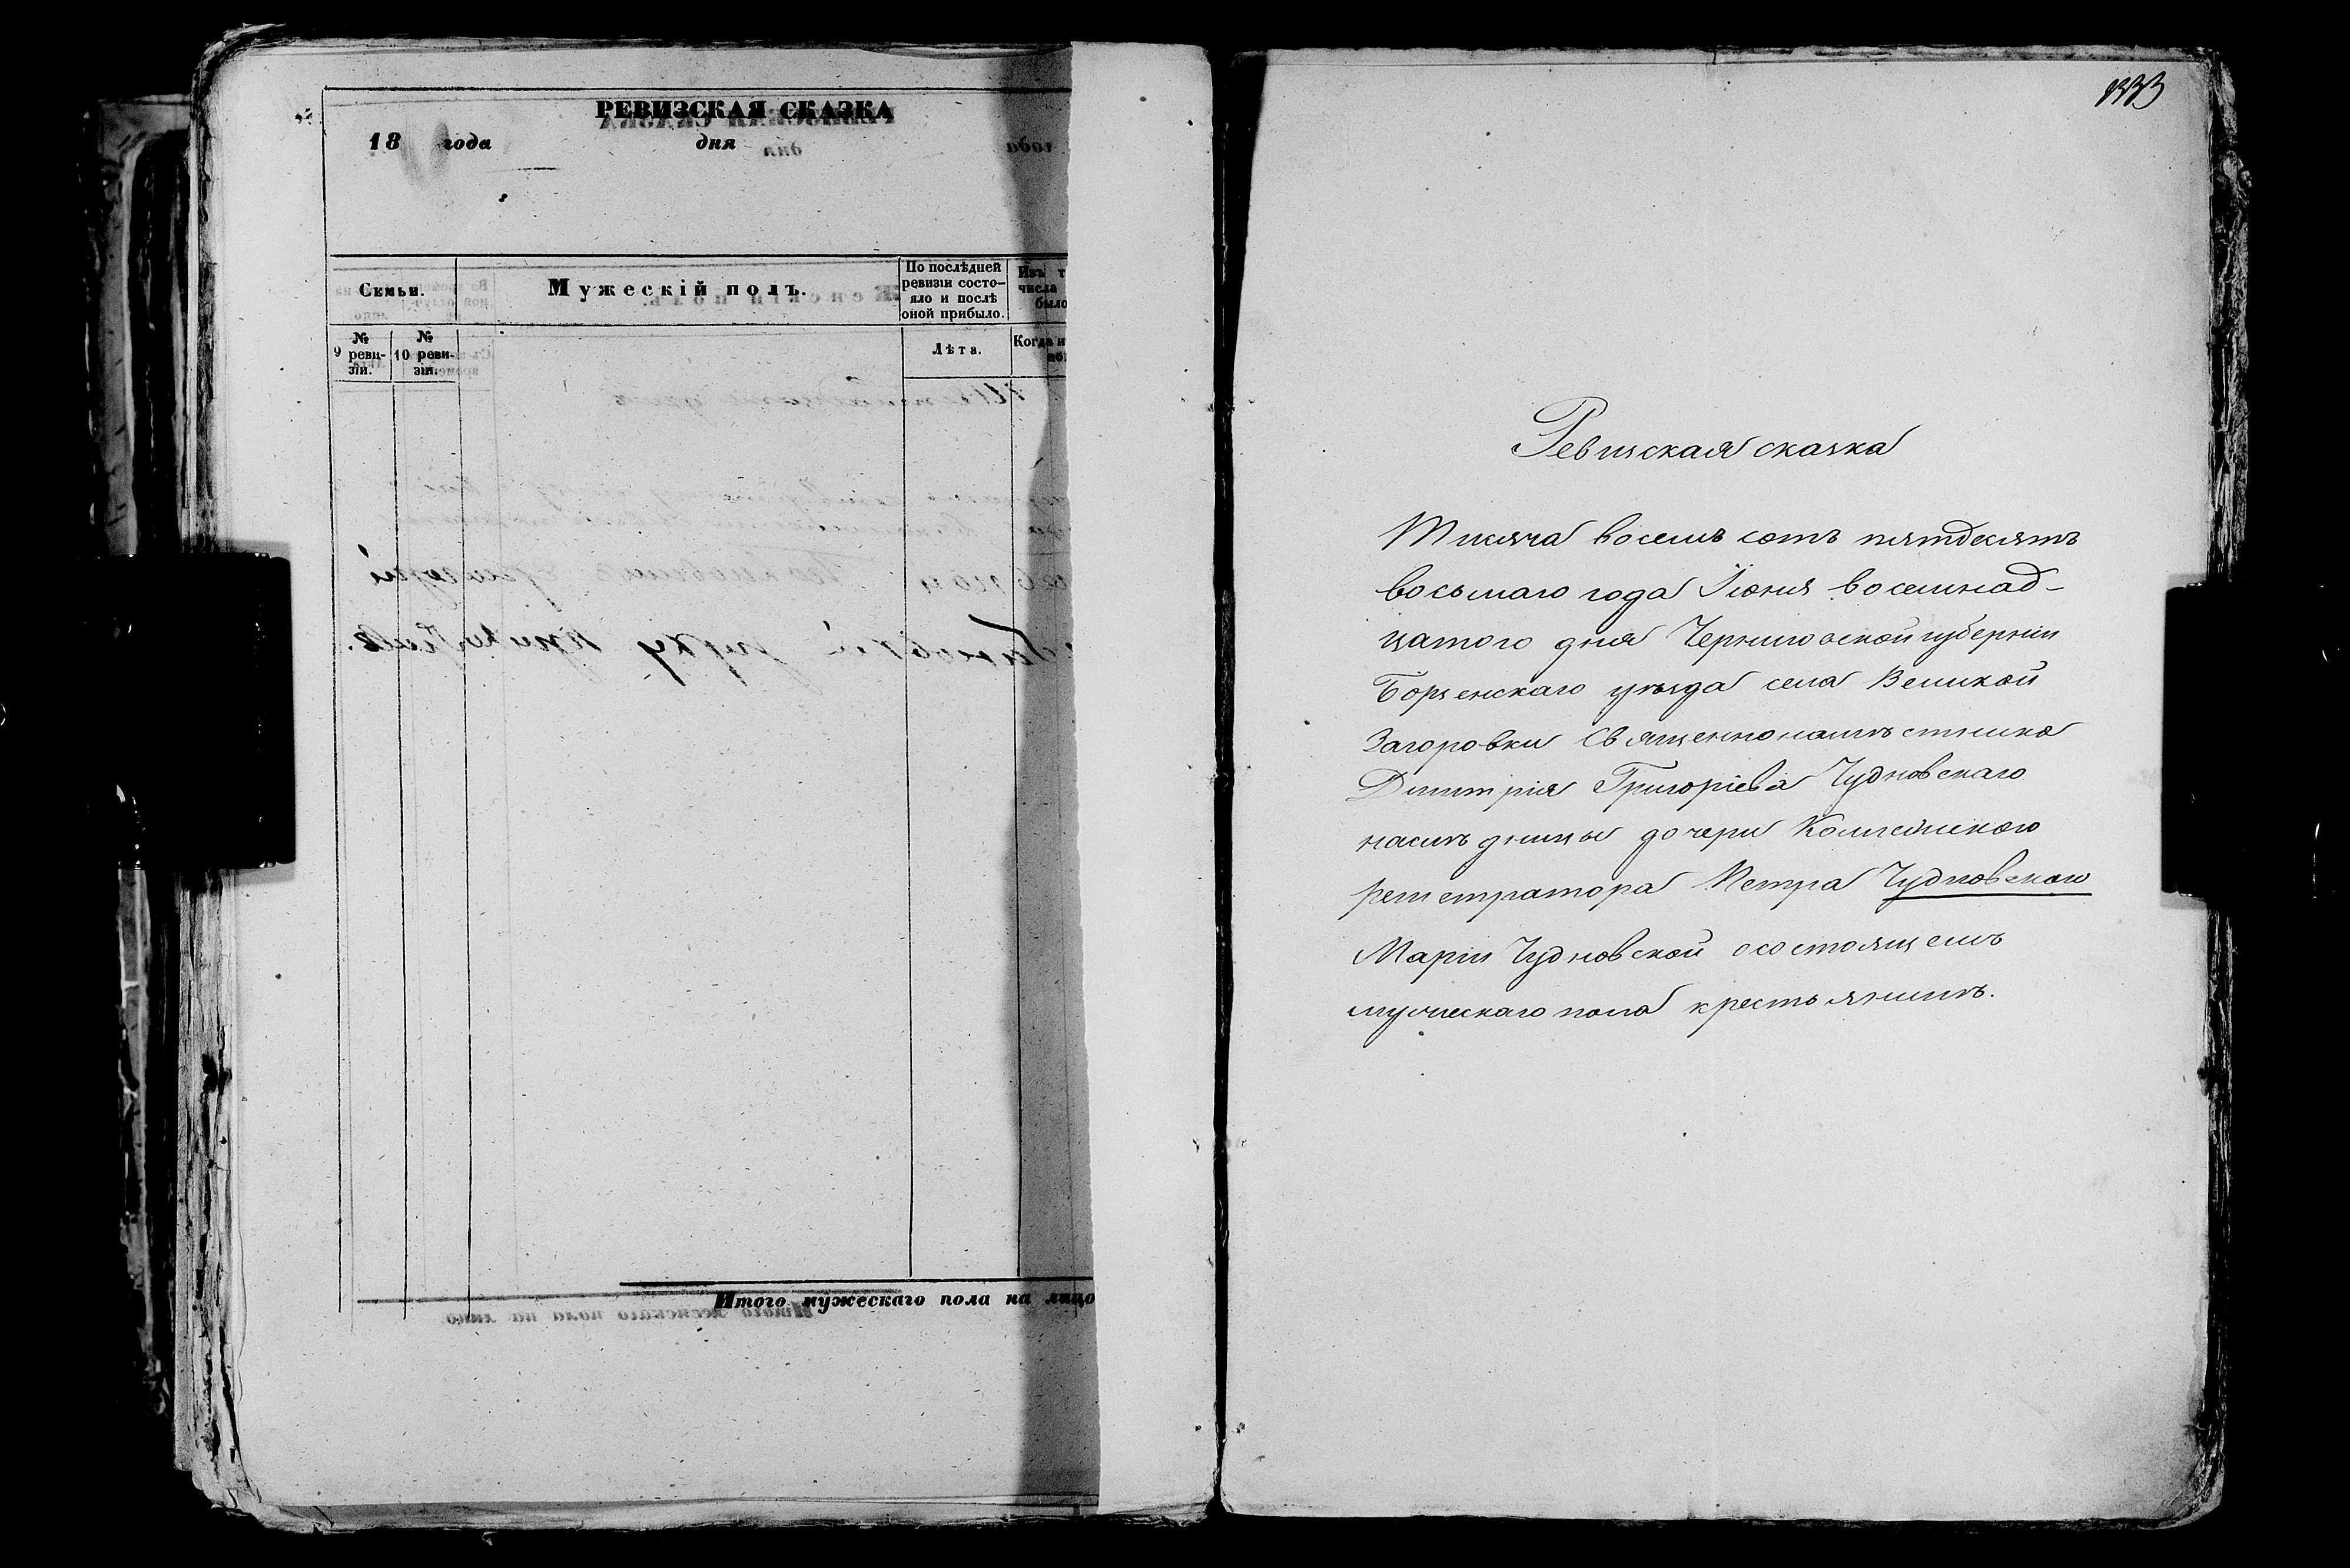 РЕВИЗСКАЯ СКАЗКА
18 года дня
Семьи.
Мужескій полъ.
По послѣдней
ревизіи состо-
яло и послѣ
оной прибыло.
Изъ т
числа
было
№
9 реви-
зіи.
№
10 реви-
зіи.
Лѣта.
Когда и
Итого мужескаго пола на лицо
Ревизская сказка
Тисяча восемъ сотъ пятдесятъ
восьмаго года Іюня восемнад-
цатого дня Черниговской губерніи
Борзенскаго уѣзда села Великой
Загоровки Священнонамѣстника
Димитрія Григоріева Чудновскаго
наслѣдницы дочери Коллежскаго
регистратора Петра Чудновскаго
Маріи Чудновской о состоящемъ
мужескаго пола крестьянинѣ.